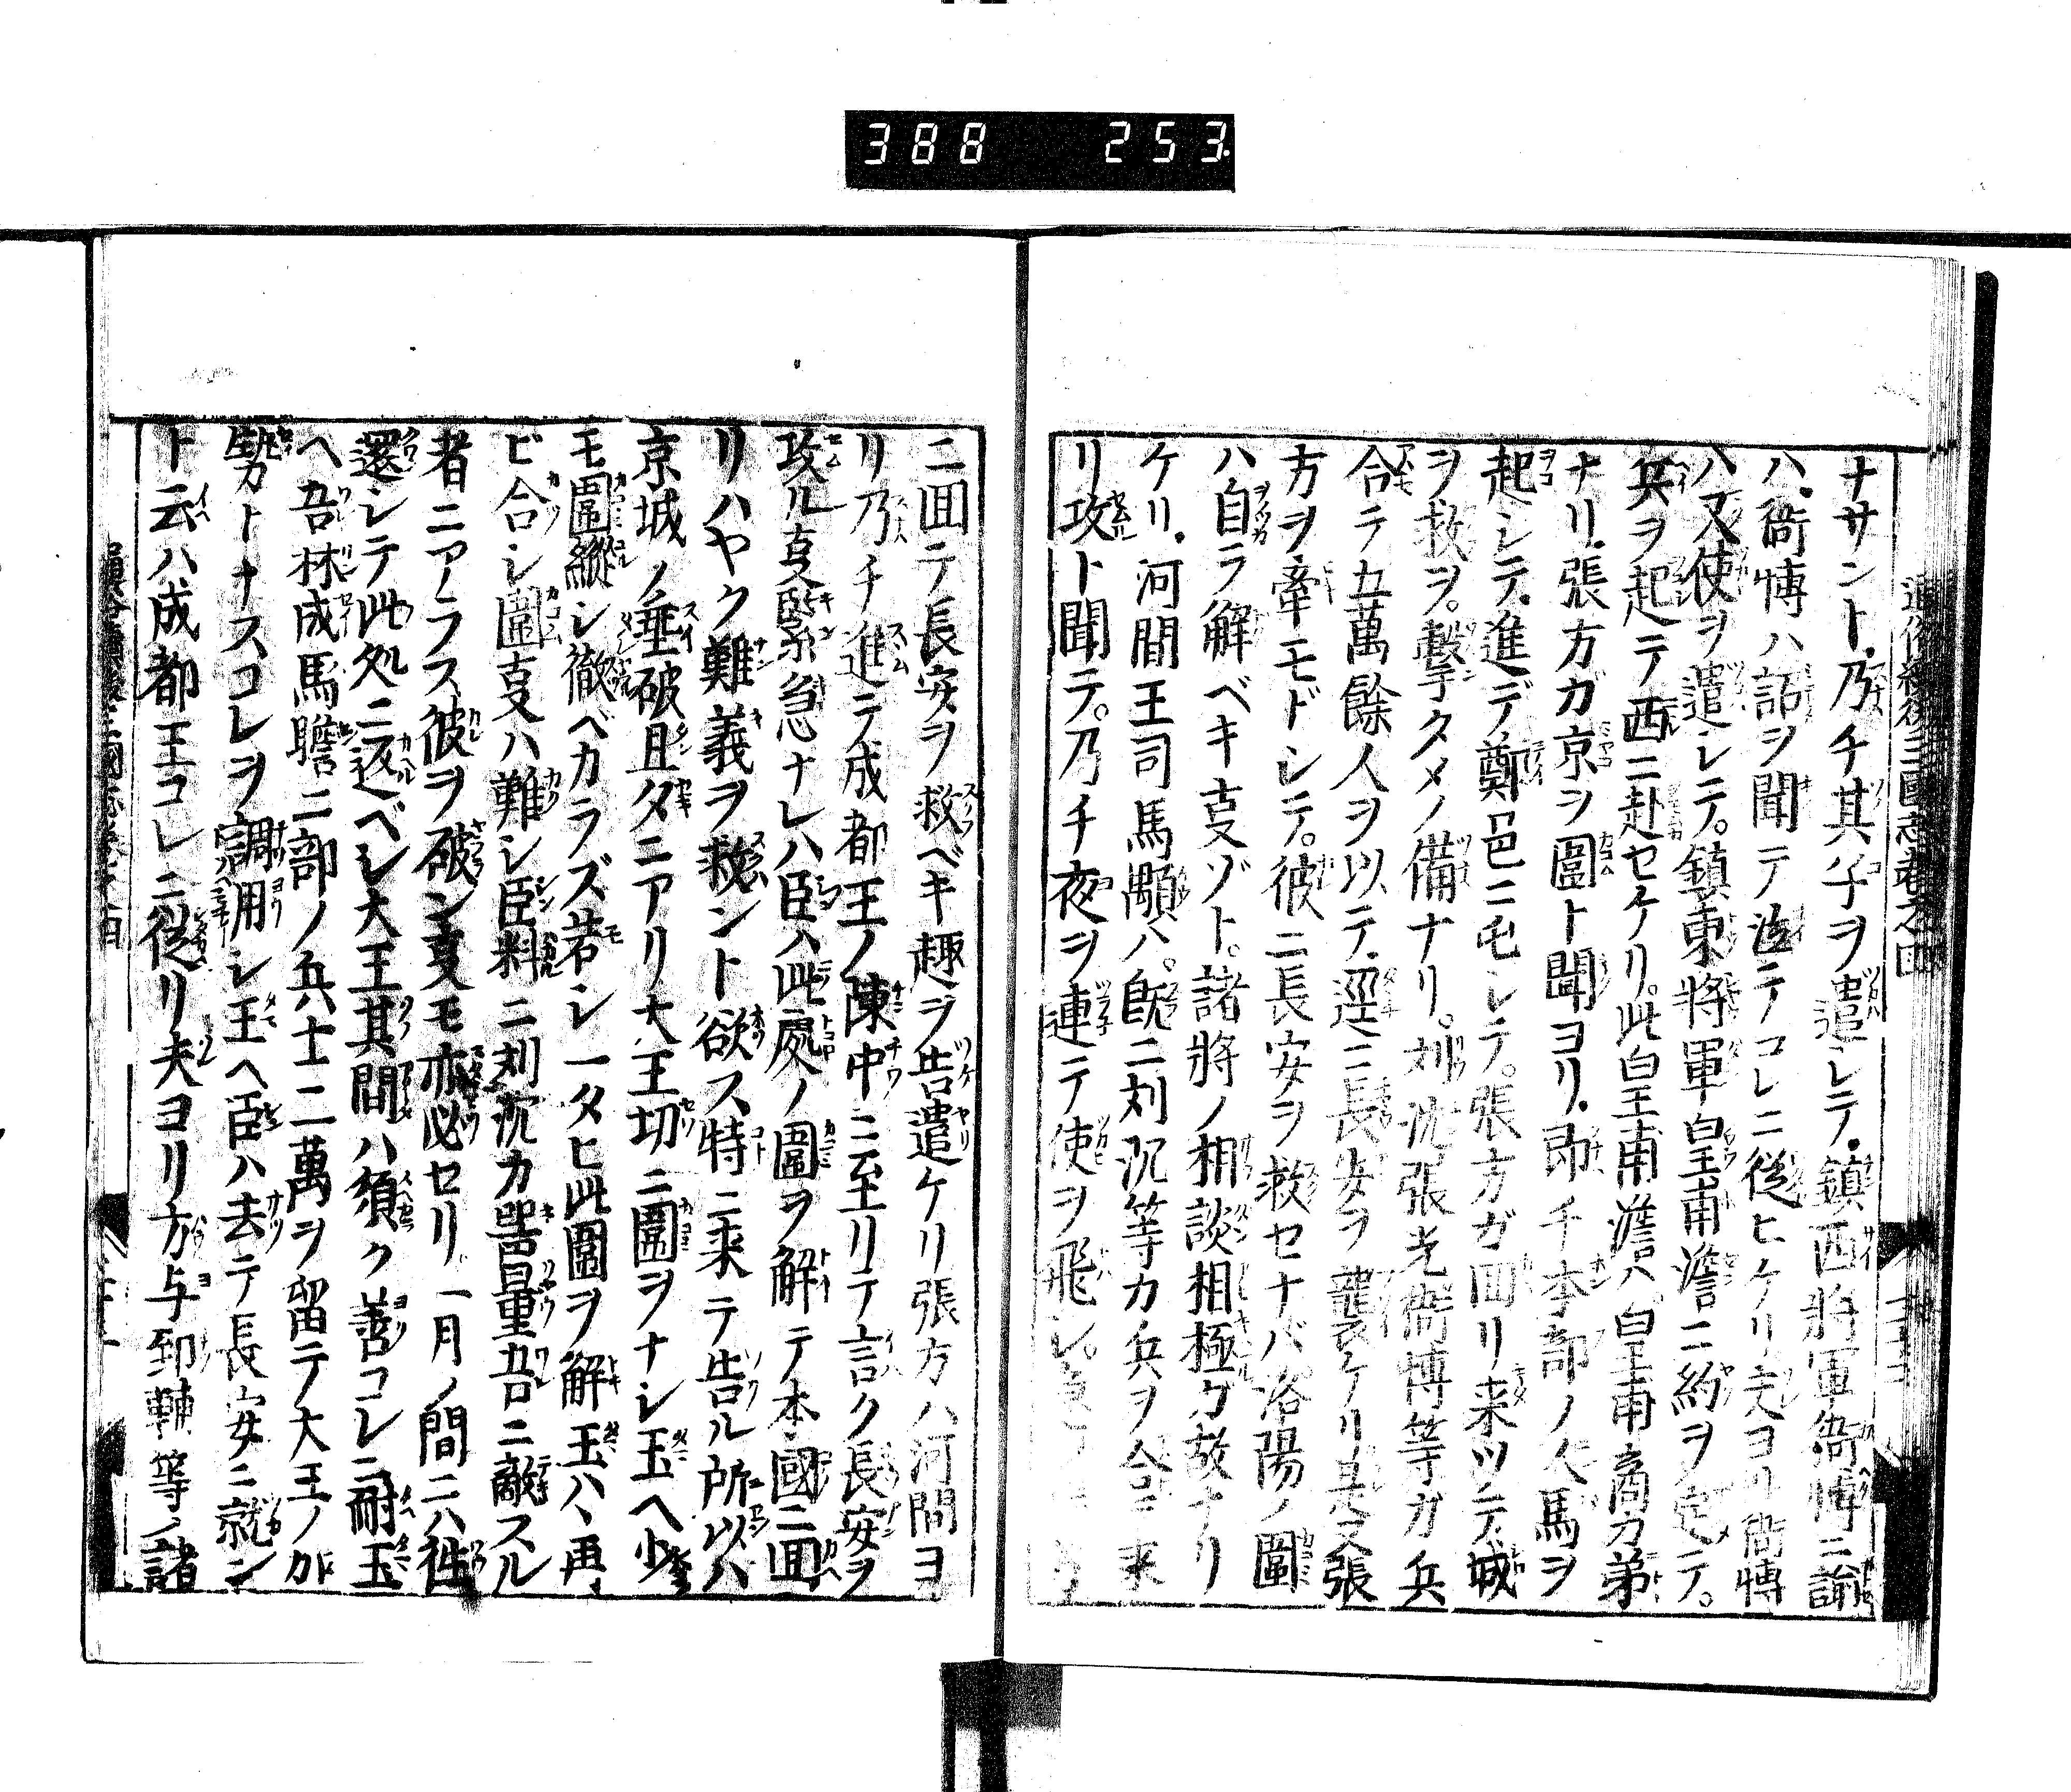 388 253
通俗續後三國志卷之四
ナサント。乃チ其子ヲ遣シテ。鎮西將軍衙博ニ諭
ハ。衙博ハ詔ヲ聞テ泣テコレニ從ヒケリ夫ヨリ衙博
ハ又使ヲ遣シテ。鎮東將軍皇甫澹ニ約ヲ定テ。
兵ヲ起テ西ニ赴セケリ。此皇甫澹ハ皇甫商カ弟
ナリ。張方ガ京ヲ圍ト聞ヨリ。即チ本部ノ人馬ヲ
起シテ。進デ鄭邑ニ屯シテ。張方ガ回リ来ツテ。城
ヲ救ヲ。擊タメノ備ナリ。刘沉張光衙博等ガ兵
合テ五萬餘人ヲ以テ。逕ニ長安ヲ襲ケリ是又張
方ヲ牽モドシテ。彼ニ長安ヲ救セナバ洛陽ノ圍
ハ自ラ解ベキ叓ゾト。諸將ノ相談相極ケ故ナリ
ケリ。河間王司馬顒ハ。既ニ刘沉等カ兵ヲ合モ来
リ攻ト聞テ。乃チ夜ヲ連テ使ヲ飛シ。
ニ囬テ長安ヲ救ベキ趣ヲ告遣ケリ張方ハ河間ヨ
リ乃チ進テ成都王ノ陳中ニ至リテ言ク長安ヲ
攻ル叓緊急ナレハ臣ハ此處ノ圍ヲ解テ本國ニ囬
リハヤク難義ヲ救ント欲ス特ニ来テ告ル所以ハ
京城ノ垂破且タニアリ大王切ニ圍ヲナシ玉ヘ少
モ圍縱シ徹ベカラズ若シ一タヒ此圍ヲ解玉ハヽ再
ビ合シ圍叓ハ難シ臣料ニ刘沉カ噐量吾ニ敵スル
者ニアラス彼ヲ破ン叓モ亦必セリ一月ノ間ニハ徃
還シテ此処ニ返ベシ大王其間ハ須ク善コレニ耐玉
ヘ吾林成馬瞻二部ノ兵士二萬ヲ留テ大王ノ加
勢カトナスコレヲ調用シ玉ヘ臣ハ去テ長安ニ就ン
ト云ハ成都王コレニ從リ夫ヨリ方与郅輔等ノ諸